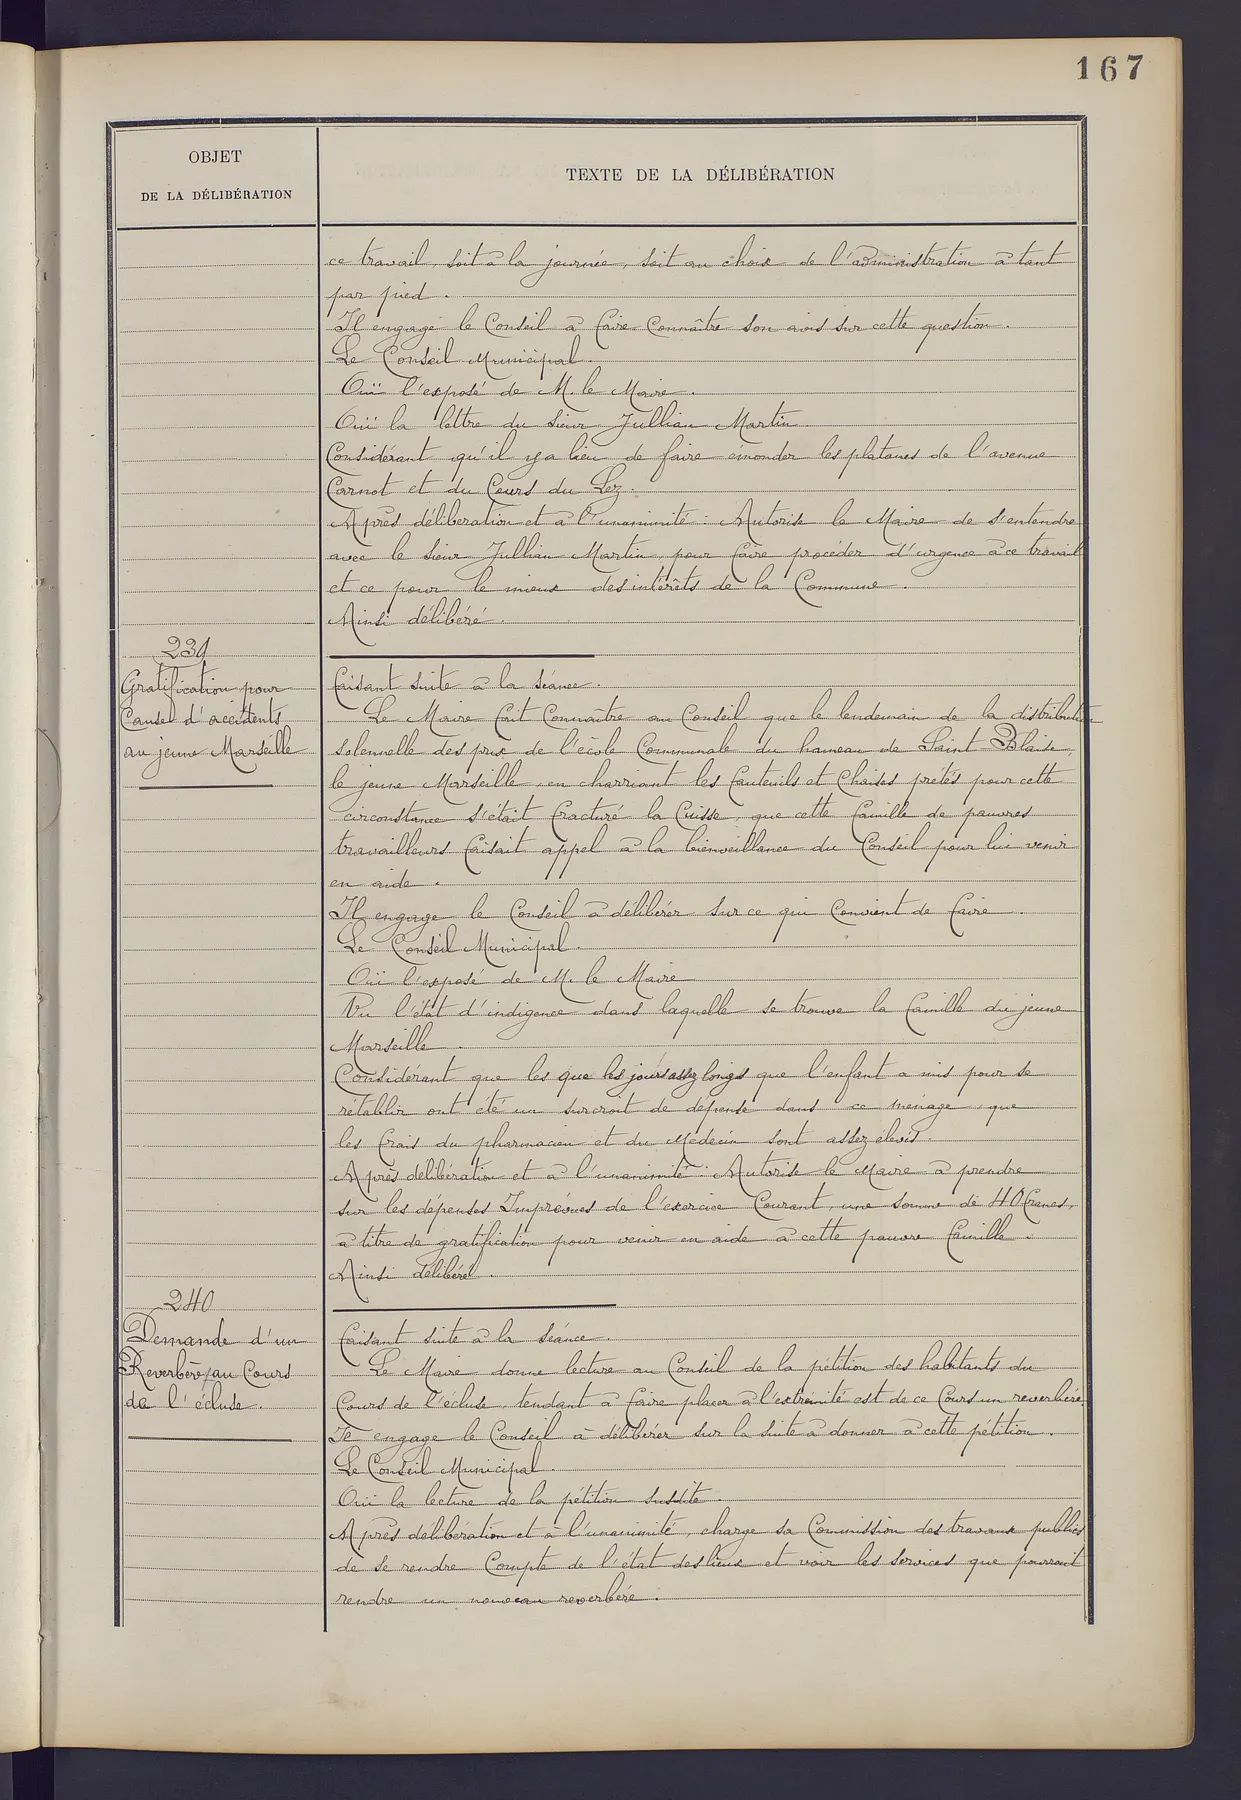 167
OBJET
DE LA DÉLIBÉRATION
TEXTE DE LA DÉLIBÉRATION
ce travail, soit à la journée, soit au choix de l'administration à tant
par pied.
Il engage le Conseil à faire connaître son avis sur cette question.
Le Conseil Municipal.
Ouï l'exposé de M. le Maire.
Ouï la lettre du sieur Jullian Martin.
Considérant qu'il y a lieu de faire émonder les platanes de l'avenue
Carnot et du Cours du Lez.
Après délibération et à l'unanimité : Autorise le Maire de s'entendre
avec le sieur Jullian Martin, pour faire procéder d'urgence à ce travail
et ce pour le mieux des intérêts de la Commune.
Ainsi délibéré.
239
Gratification pour
cause d'accidents
au jeune Marseille
Faisant suite à la séance.
Le Maire fait connaître au Conseil que le lendemain de la distribution
solennelle des prix de l'école Communale du hameau de Saint Blaise,
le jeune Marseille, en charriant les fauteuils et chaises prêtés pour cette
circonstance s'était fracturé la cuisse, que cette famille de pauvres
travailleurs faisait appel à la bienveillance du Conseil pour lui venir
en aide.
Il engage le Conseil à délibérer sur ce qui convient de faire.
Le Conseil Municipal.
Ouï l'exposé de M. le Maire
Vu l'état d'indigence dans laquelle se trouve la famille du jeune
Marseille.
Considérant que les que les jours assez longs que l'enfant a mis pour se
rétablir ont été un surcroit de dépense dans ce ménage, que
les frais du pharmacien et du Médecin sont assez élevés.
Après délibération et à l'unanimité : Autorise le Maire à prendre
sur les dépenses Imprévues de l'exercice Courant, une somme de 40 francs,
à titre de gratification pour venir en aide à cette pauvre famille.
Ainsi délibéré.
240
Demande d'un
Reverbère au Cours
de l'écluse.
Faisant suite à la séance.
Le Maire donne lecture au Conseil de la pétition des habitants du
Cours de l'écluse, tendant à faire placer à l'extrémité est de ce Cours un reverbère.
Il engage le Conseil à délibérer sur la suite à donner à cette pétition.
Le Conseil Municipal.
Ouï la lecture de la pétition susdite.
Après délibération et à l'unanimité, charge sa Commission des travaux publics
de se rendre Compte de l'état des lieux et voir les services que pourrait
rendre un nouveau reverbère.